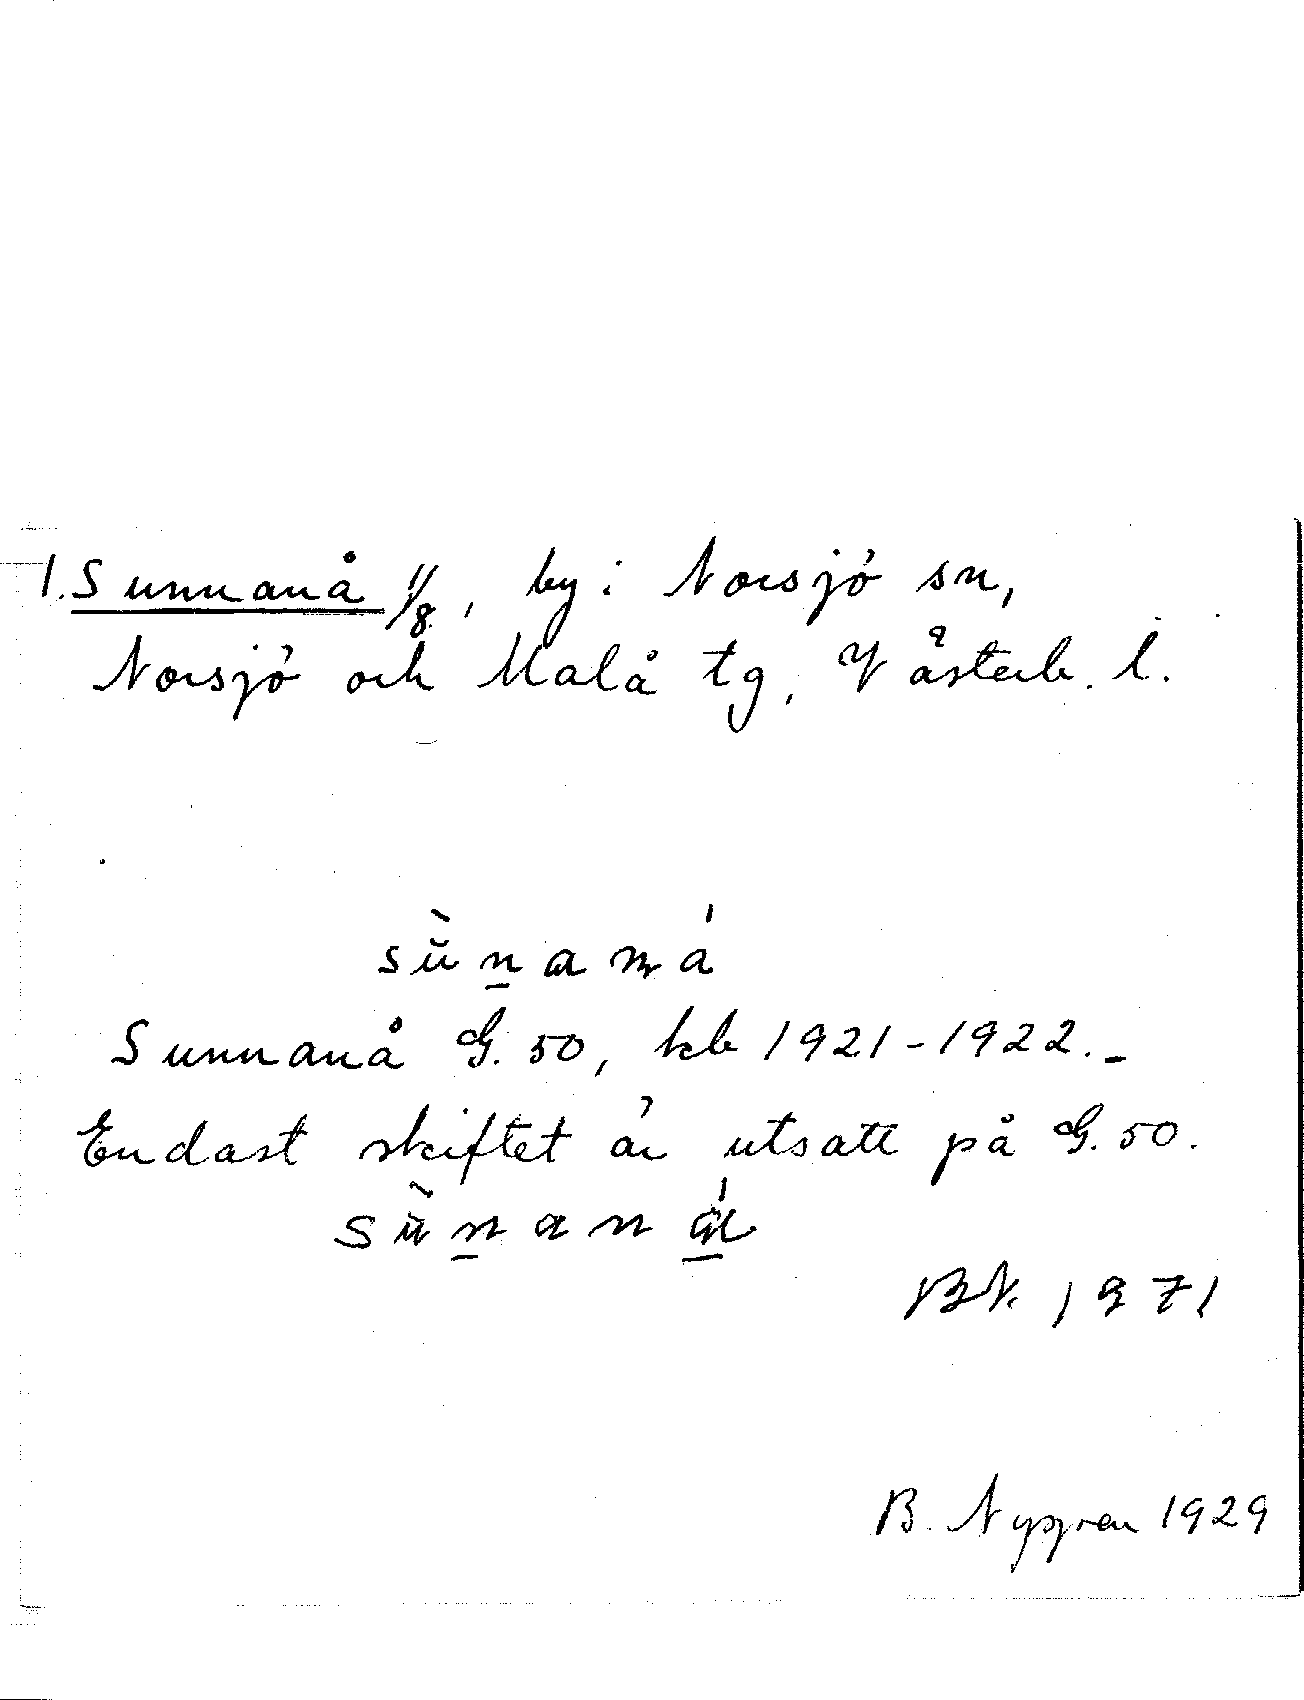 1. Sunnanå 1/8, by i Norsjö sn,
Norsjö och Malå tg, Västerb. l.
sùn̲aná
Sunnanå G. 50, kb 1921-1922.-
Endast skiftet är utsatt på G. 50.
sùn̲aná̲
BN. 1971
B. Nygren 1929